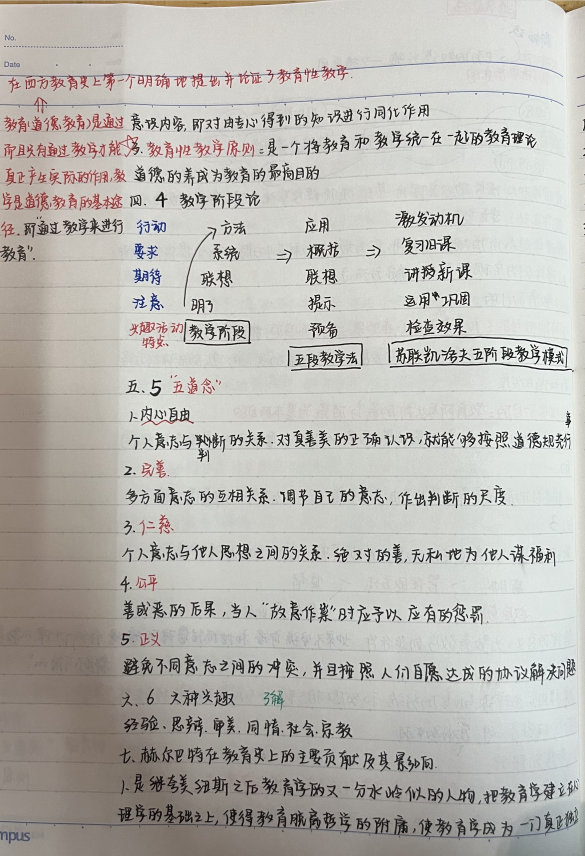 No.
Date
在西方教育史上第一个明确地提出并论证了教育性教学.
教育(道德教育)是通过
而且只有通过教学才能
真正产生实际的作用,教
学是道德教育的基本途
径.即"通过教学来进行
教育".
意识内容,即对由专心得到的知识进行同化作用
3.教育性教学原则:是一个将教育和教学统一在一起的教育理论
道德的养成为教育的最高目的
四.4 教学阶段论
行动 方法 应用 激发动机
要求 系统 ⇒ 概括 ⇒ 复习旧课
期待 联想 联想 讲授新课
注意 明了 提示 运用巩固
兴趣活动 教学阶段 预备 检查效果
特点 五段教学法 苏联凯洛夫五阶段教学模式
五.5 "五道念"
1.内心自由
个人意志与判断的关系.对真善美的正确认识,就能够按照道德规范行事
判
2.完善.
多方面意志的互相关系.调节自己的意志,作出判断的尺度.
3.仁慈
个人意志与他人思想之间的关系.绝对的善,无私地为他人谋福利
4.公平
善或恶的后果,当人"故意作祟"时应予以应有的惩罚.
5.正义
避免不同意志之间的冲突,并且按照人们自愿达成的协议解决问题
六.6 六种兴趣 了解
经验、思辨、审美、同情、社会、宗教
七.赫尔巴特在教育史上的主要贡献及其影响.
1.是继夸美纽斯之后教育学的又一分水岭似的人物,把教育学建立在心
理学的基础之上,使得教育脱离哲学的附庸,使教育学因为一门真正
mpus